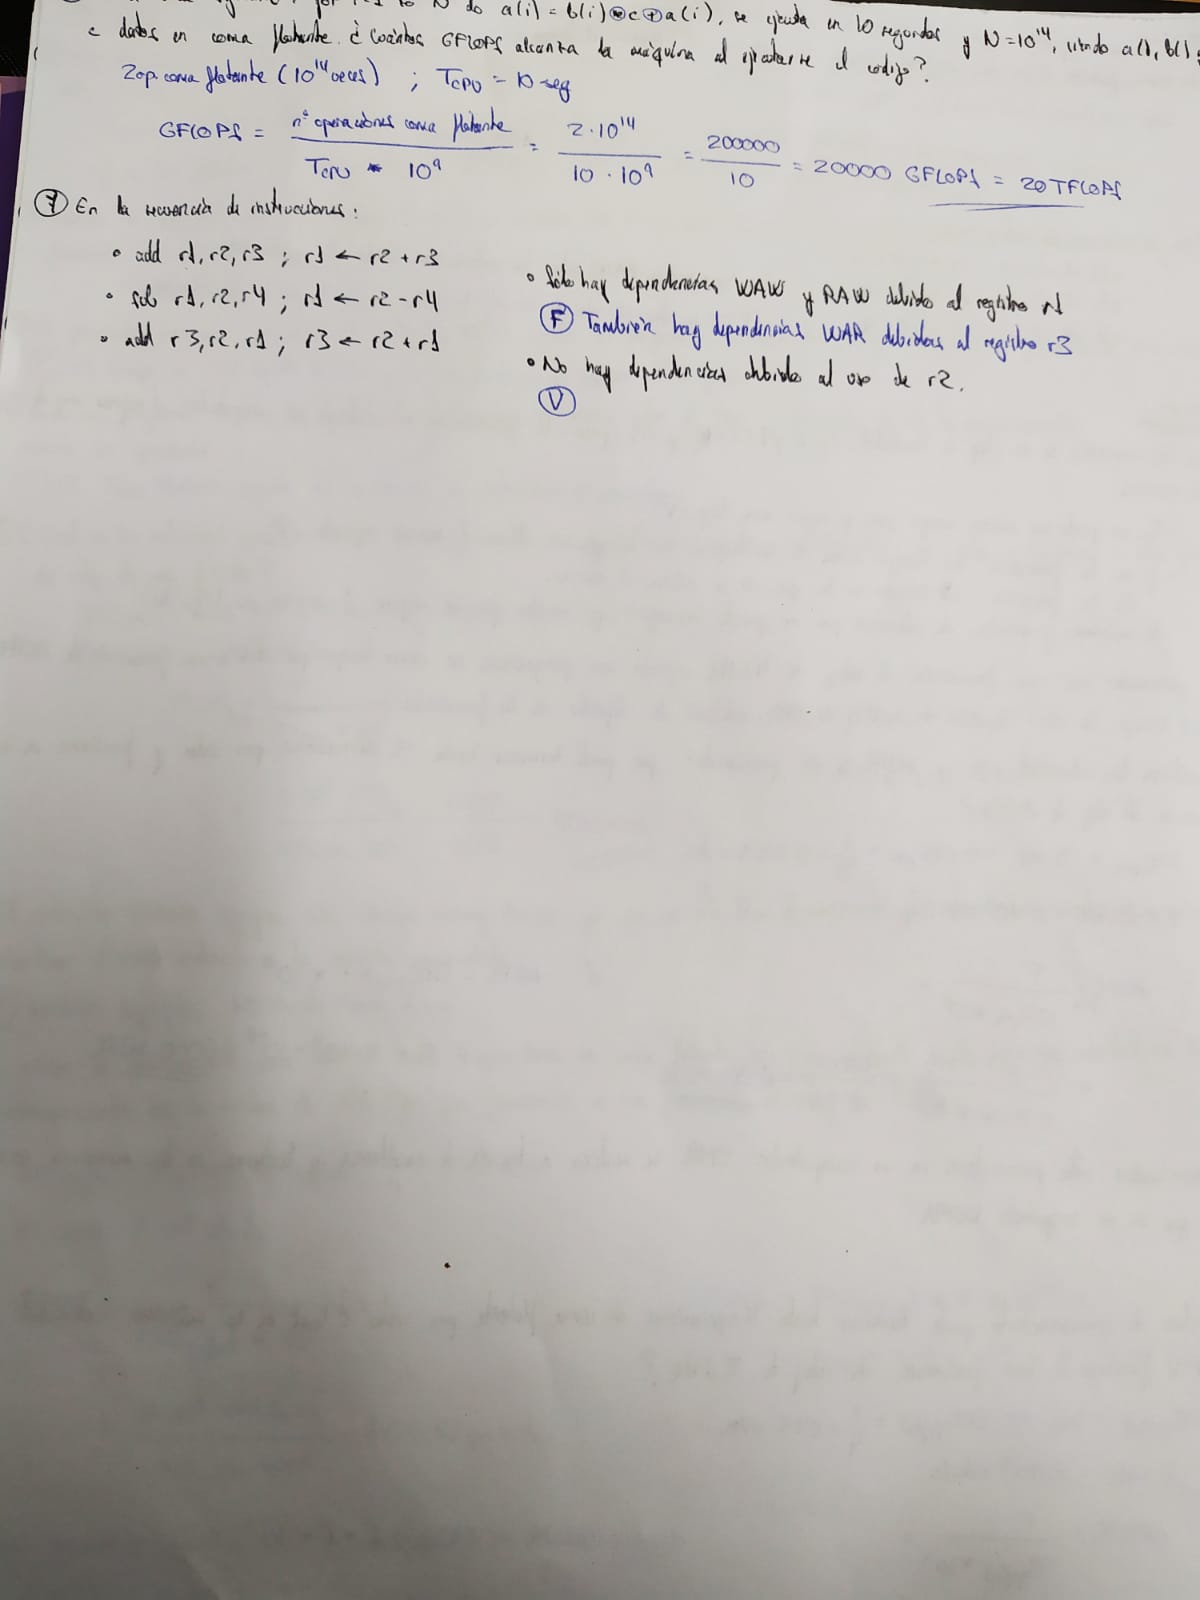 for i=1 to N do a(i) = b(i)*c+a(i), se ejecuta en 10 segundos y N=10^14, siendo a(), b() y
c datos en coma flotante. ¿Cuántos GFLOPS alcanza la máquina al ejecutarse el código?
2op. coma flotante (10^14 veces) ; TCPU = 10 seg
GFLOPS = nº operaciones coma flotante / TCPU * 10^9 = 2·10^14 / 10·10^9 = 200000 / 10 = 20000 GFLOPS = 20 TFLOPS
7 En la secuencia de instrucciones:
• add r1, r2, r3 ; r1 ← r2 + r3
• sub r1, r2, r4 ; r1 ← r2 - r4
• add r3, r2, r1 ; r3 ← r2 + r1
• Sólo hay dependencias WAW y RAW debido al registro r1
F También hay dependencias WAR debidas al registro r3
• No hay dependencias debido al uso de r2.
V